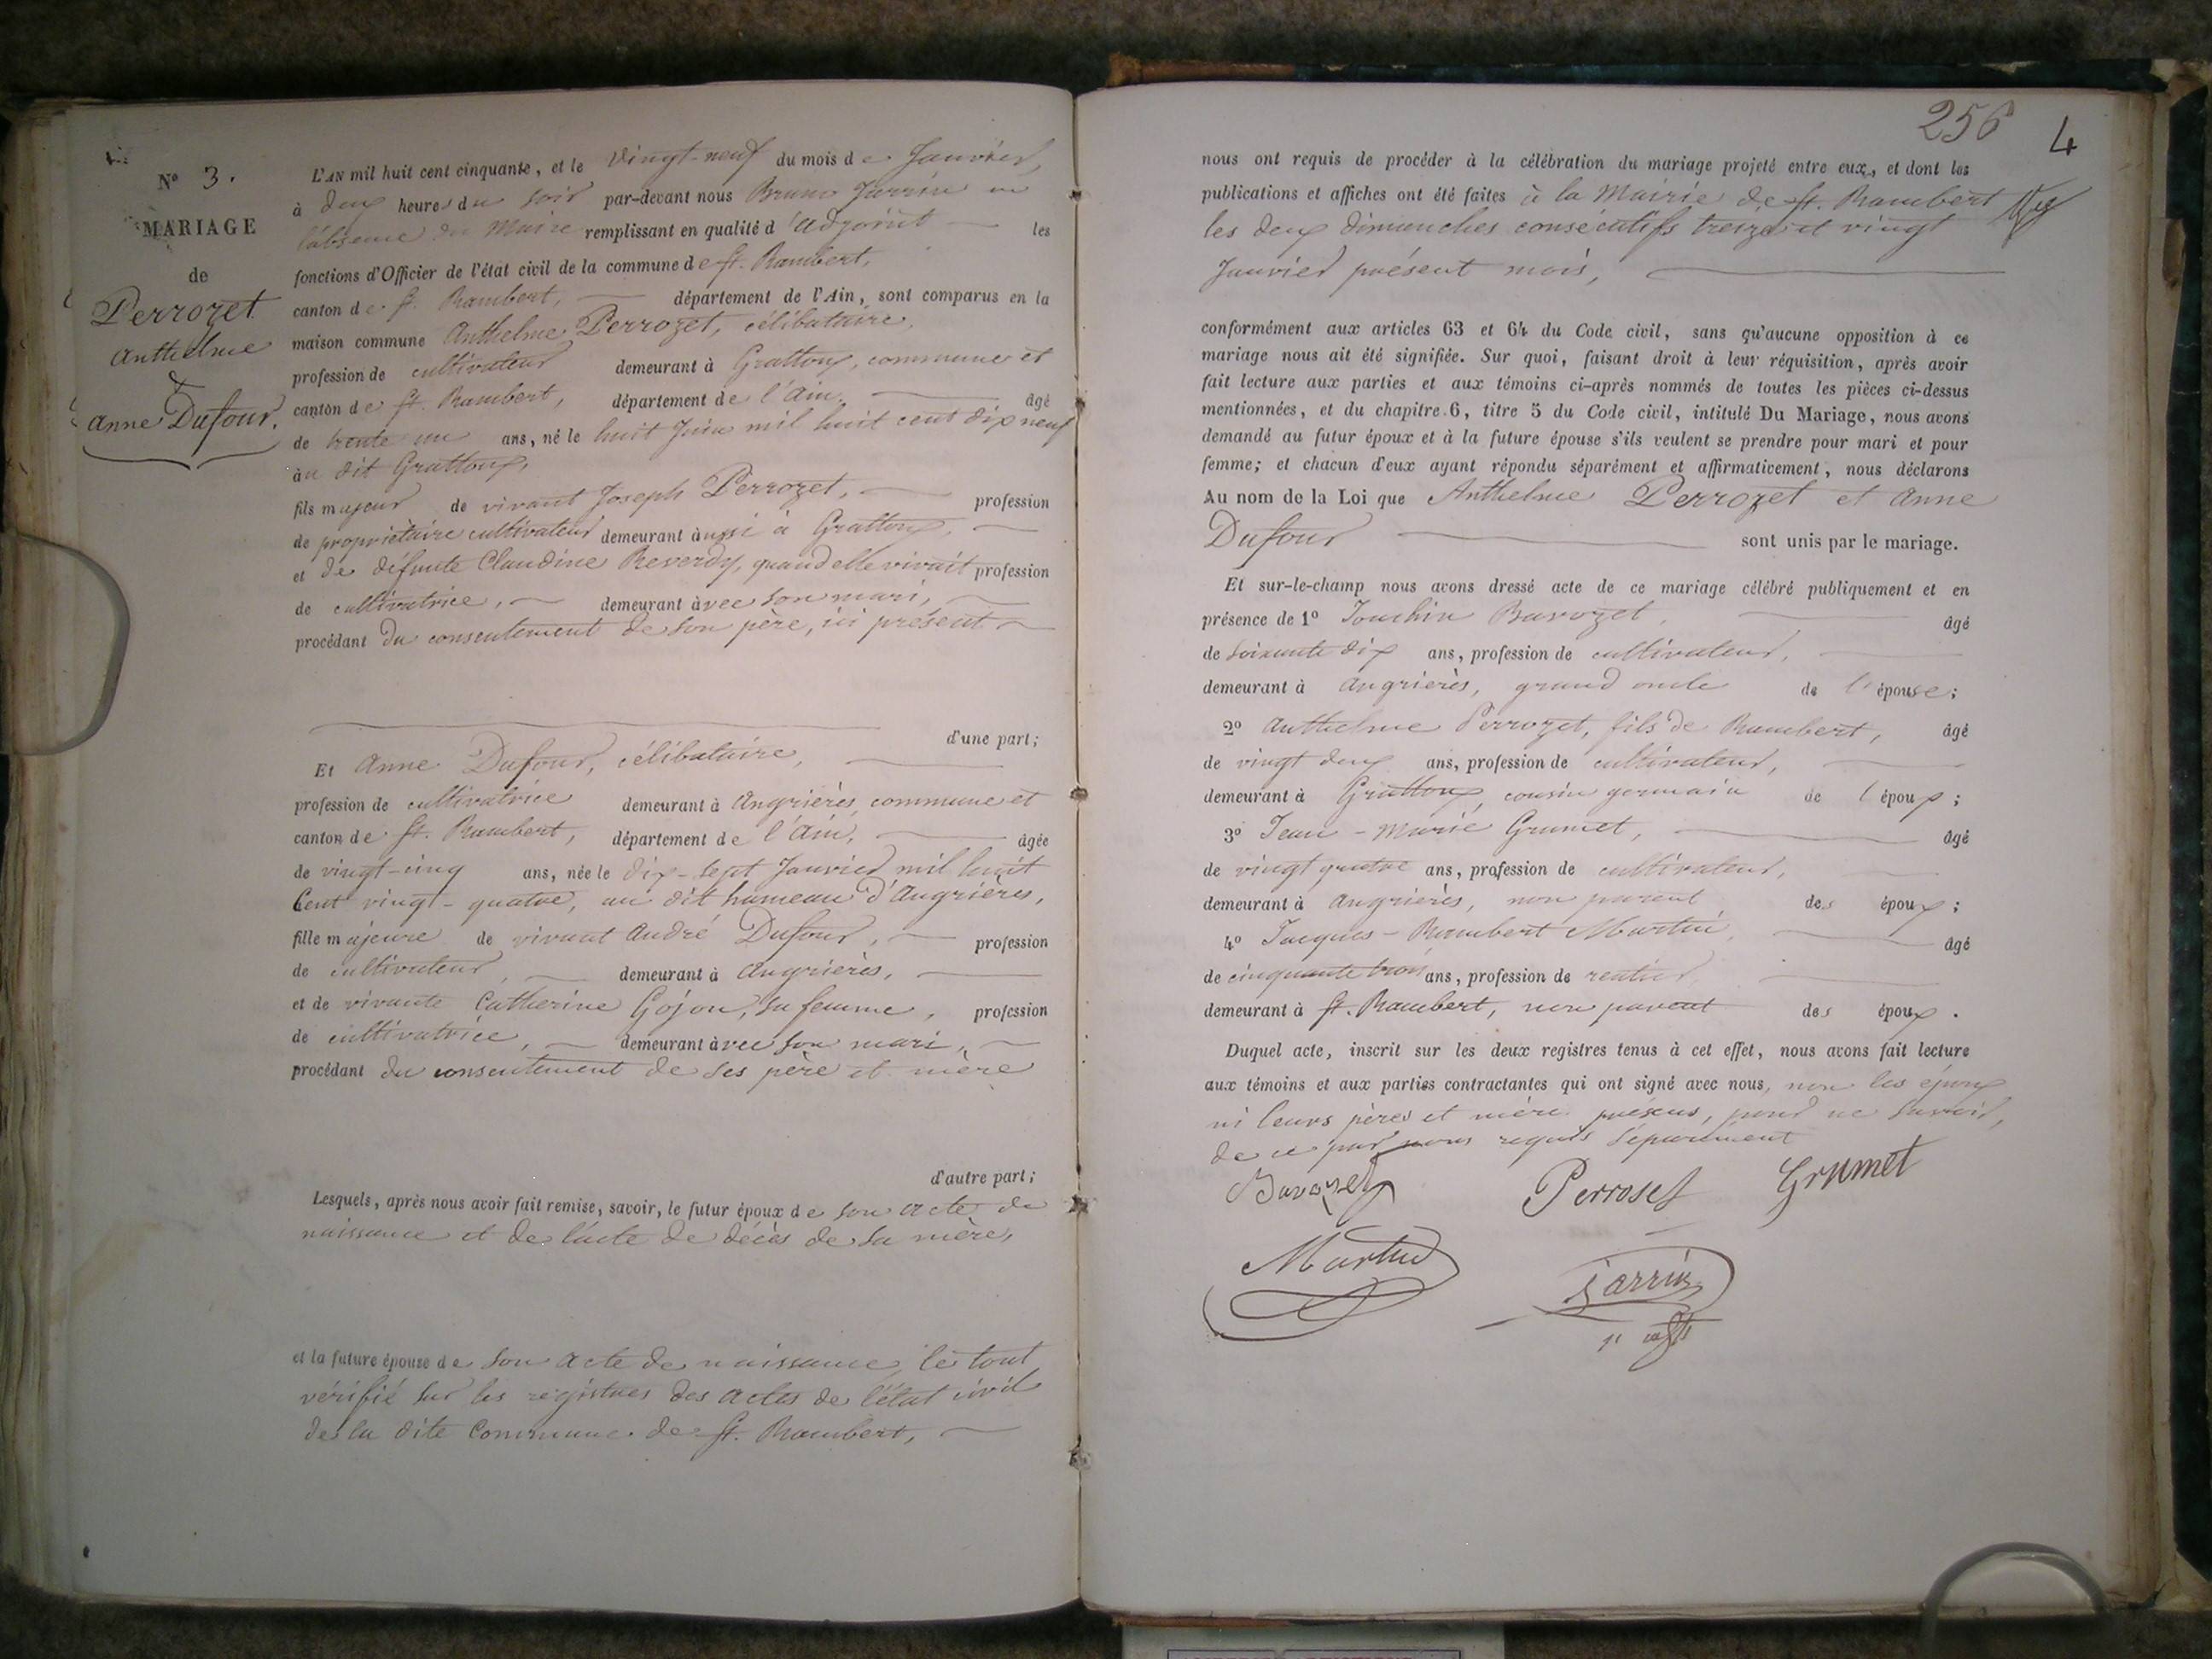 N° 3.
MARIAGE
de
Perrozet
Anthelme
&
Anne Dufour.
L'AN mil huit cent cinquante, et le Vingt-neuf du mois de Janvier,
à deux heures du soir par-devant nous Bruno Jarrin en
l'absence du Maire remplissant en qualité d'adjoint les
fonctions d'Officier de l'état civil de la commune de St. Rambert,
canton de St. Rambert, département de l'Ain, sont comparus en la
maison commune Anthelme Perrozet, célibataire,
profession de cultivateur demeurant à Grattoux, commune et
canton de St. Rambert, département de l'Ain, âgé
de trente un ans, né le huit Juin mil huit cent dix neuf
au dit Grattoux,
fils majeur de vivant Joseph Perrozet, profession
de propriétaire cultivateur demeurant aussi à Grattoux,
et de défunte Claudine Reverdy, quand elle vivait profession
de cultivatrice, demeurant avec son mari,
procédant du consentement de son père, ici présent
d'une part;
Et Anne Dufour, célibataire,
profession de cultivatrice demeurant à Angrières, commune et
canton de St. Rambert, département de l'Ain, âgée
de vingt-cinq ans, née le dix-sept Janvier mil huit
Cent vingt-quatre, au dit hameau d'Angrières,
fille majeure de vivant André Dufour, profession
de cultivateur, demeurant à Angrières,
et de vivante Catherine Gojon, sa femme, profession
de cultivatrice, demeurant avec son mari,
procédant du consentement de ses père et mère
d'autre part;
Lesquels, après nous avoir fait remise, savoir, le futur époux de son acte de
naissance et de l'acte de décès de sa mère,
et la future épouse de son acte de naissance, le tout
vérifié sur les registres des actes de l'état civil
de la dite Commune de St. Rambert,
256 4
nous ont requis de procéder à la célébration du mariage projeté entre eux, et dont les
publications et affiches ont été faites à la Mairie de St. Rambert
les deux dimanches consécutifs treize et vingt
Janvier présent mois,
conformément aux articles 63 et 64 du Code civil, sans qu'aucune opposition à ce
mariage nous ait été signifiée. Sur quoi, faisant droit à leur réquisition, après avoir
fait lecture aux parties et aux témoins ci-après nommés de toutes les pièces ci-dessus
mentionnées, et du chapitre 6, titre 5 du Code civil, intitulé Du Mariage, nous avons
demandé au futur époux et à la future épouse s'ils veulent se prendre pour mari et pour
femme; et chacun d'eux ayant répondu séparément et affirmativement, nous déclarons
Au nom de la Loi que Anthelme Perrozet et Anne
Dufour sont unis par le mariage.
Et sur-le-champ nous avons dressé acte de ce mariage célébré publiquement et en
présence de 1° Joachin Bavozet, âgé
de soixante dix ans, profession de cultivateur,
demeurant à Angrières, grand oncle de l'épouse;
2° Anthelme Perrozet, fils de Rambert, âgé
de vingt deux ans, profession de cultivateur,
demeurant à Grattoux, cousin germain de l'époux;
3° Jean-Marie Grumet, âgé
de vingt quatre ans, profession de cultivateur,
demeurant à Angrières, non parent des époux;
4° Jacques-Rambert Martin, âgé
de cinquante trois ans, profession de rentier,
demeurant à St. Rambert, non parent des époux.
Duquel acte, inscrit sur les deux registres tenus à cet effet, nous avons fait lecture
aux témoins et aux parties contractantes qui ont signé avec nous, non les époux
ni leurs pères et mère présens, pour ne savoir,
de ce par nous requis séparément
Bavozet Perroset Grumet
Martin Jarrin